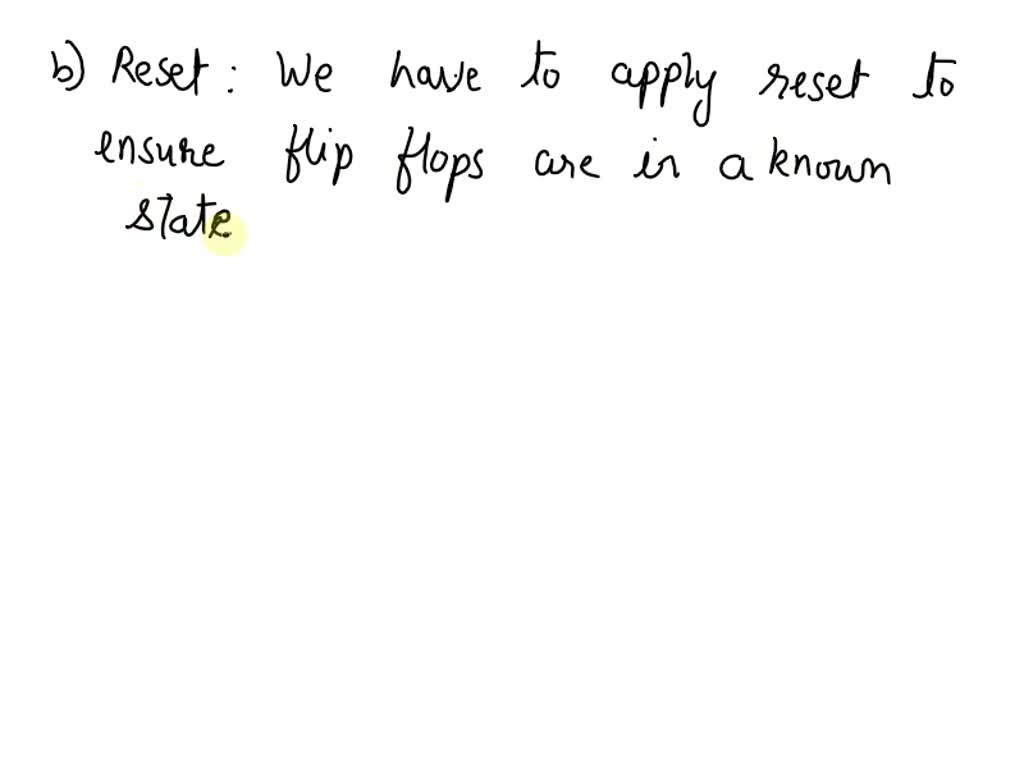 b) Reset: We have to apply reset to
ensure flip flops are in a known
state